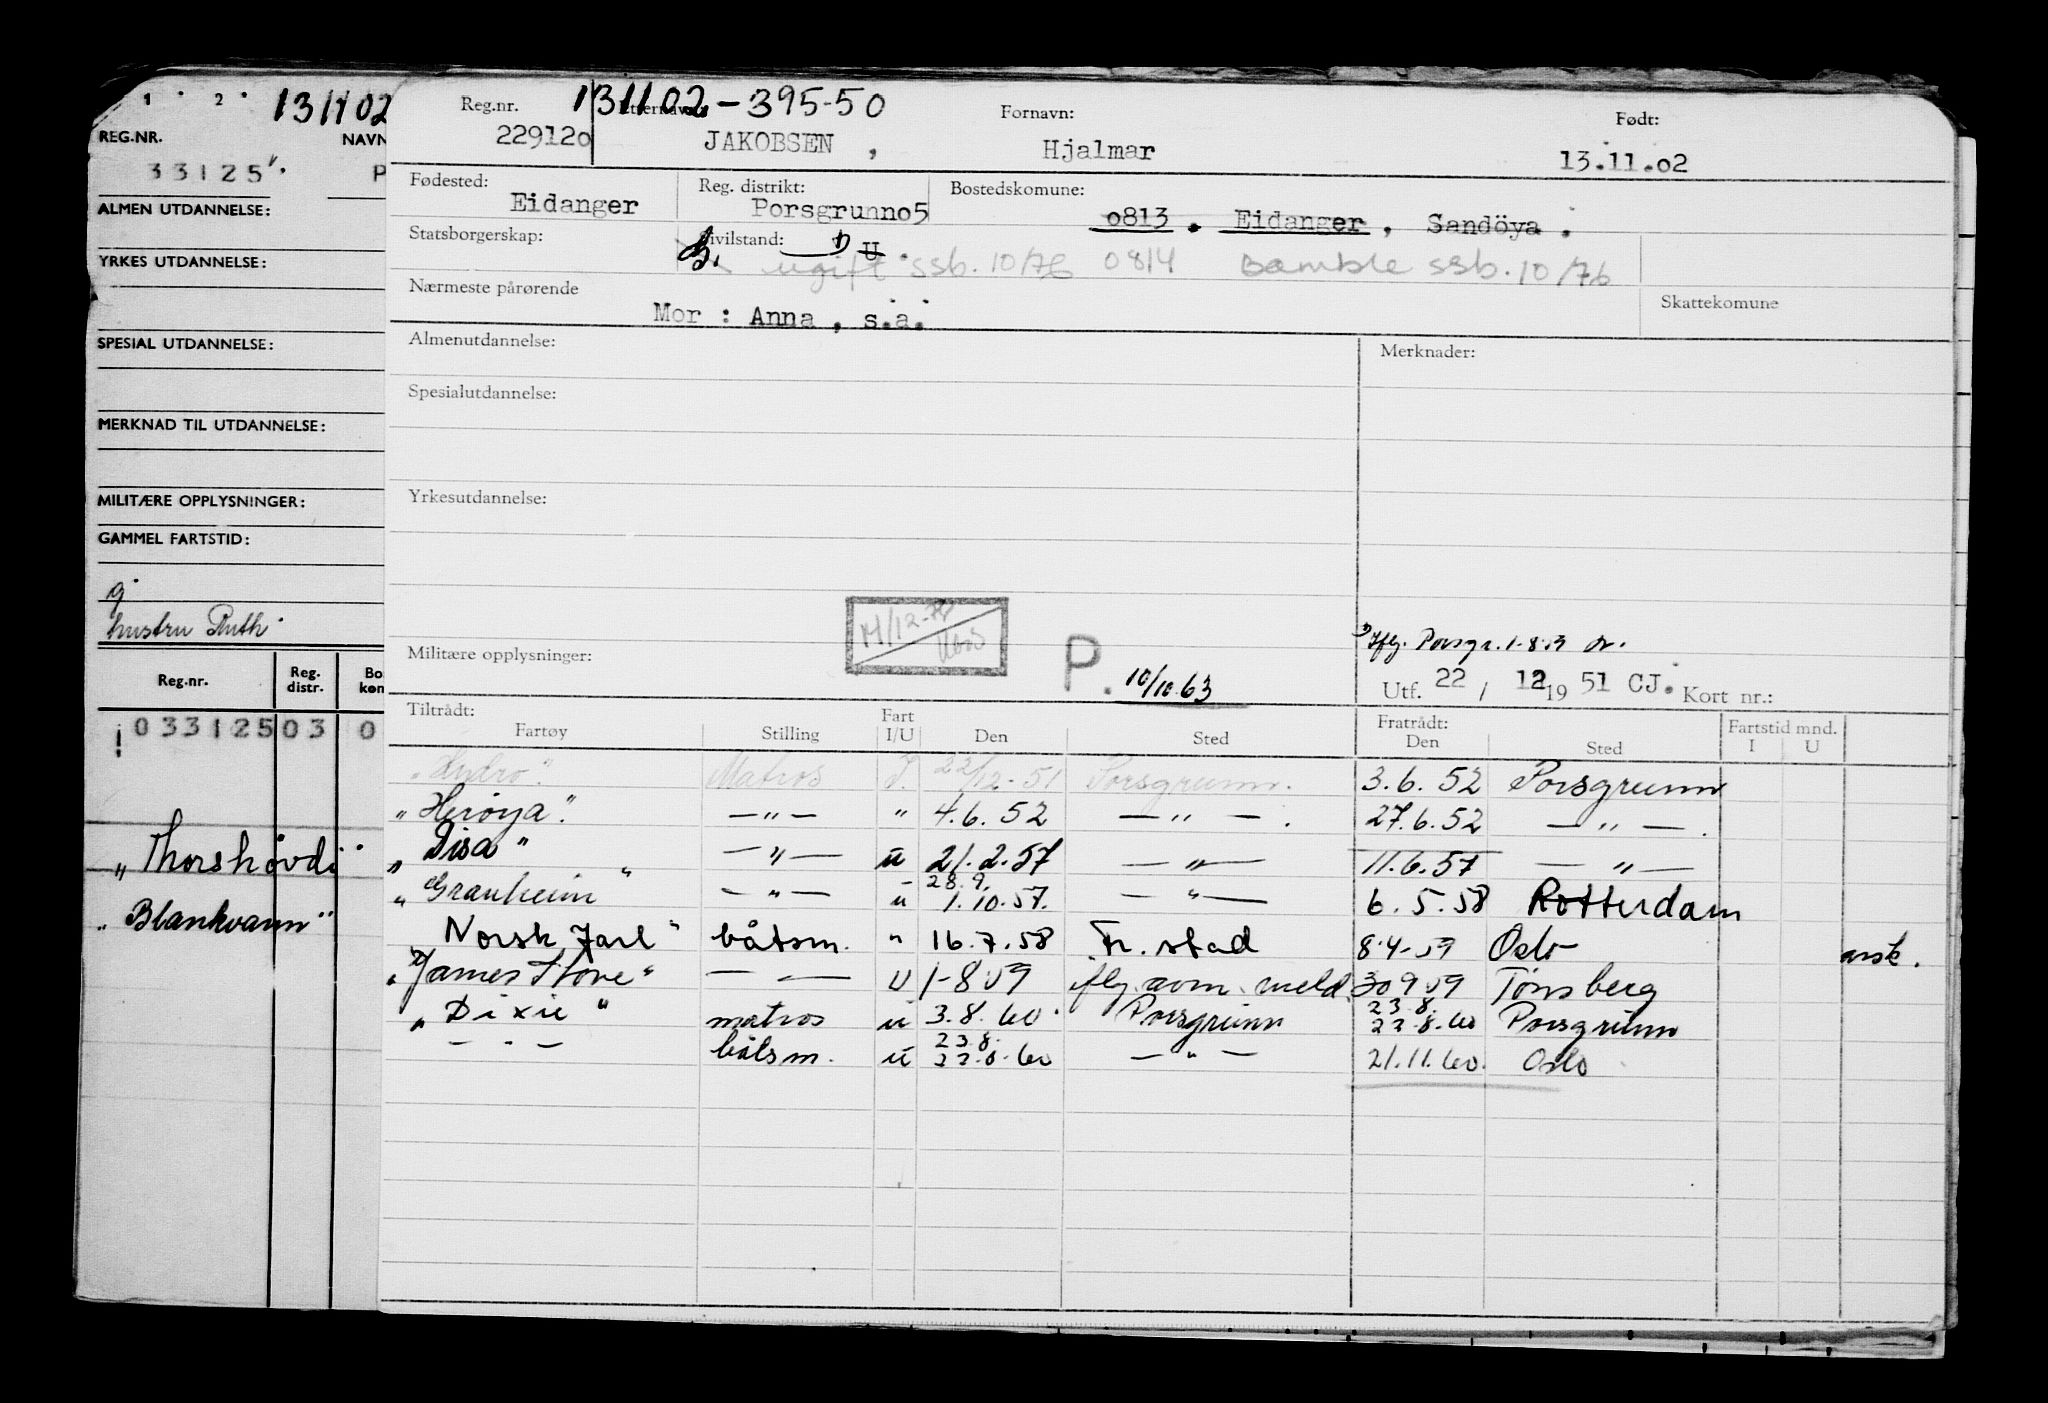 1 2 131102
REG.NR. NAVN
33125 P
ALMEN UTDANNELSE:
YRKES UTDANNELSE:
SPESIAL UTDANNELSE:
MERKNAD TIL UTDANNELSE:
MILITÆRE OPPLYSNINGER:
GAMMEL FARTSTID:
g
hustru Ruth
Reg.nr. Reg. distr. Bo kon
033125 03 0
„Thorshøvdi"
„Blankvann"
Reg.nr. 131102-395-50 Etternavn: Fornavn: Født:
229120 JAKOBSEN, Hjalmar 13.11.02
Fødested: Reg. distrikt: Bostedskomune:
Eidanger Porsgrunn05 0813. Eidanger, Sandöya.
Statsborgerskap: Civilstand: 1) U.
ugift ssb. 10/76 0814 Bamble ssb. 10/76
Nærmeste pårørende Skattekomune
Mor : Anna, s.a.
Almenutdannelse: Merknader:
Spesialutdannelse:
Yrkesutdannelse:
M/12-
1) Iflg. Porsgr. 1-8-53
Militære opplysninger: P. 10/10.63
Utf. 22 / 12 19 51 CJ. Kort nr.:
Tiltrådt: Fart Fratrådt: Fartstid mnd.
Fartøy Stilling I/U Den Sted Den Sted I U
„Hydro". Matros I. 22/12-51 Porsgrunn. 3.6.52 Porsgrunn
„Herøya". —"— " 4.6.52 —"—. 27.6.52 —"—.
„Disa" —"— u 21.2.57 —"— 11.6.57 —"—
„Granheim" —"— u 28.9. 1.10.57. —"— 6.5.58 Rotterdam
Norsk Jarl" båtsm. " 16.7.58 Fr.stad 8-4-59 Oslo avsk.
„James Stove" — — U 1-8-59 iflg. avm. meld. 30 9 59 Tønsberg
„Dixie" matros u 3.8.60 Porsgrunn 23.8. 22.8.60 Porsgrunn
— " — båtsm. u 23.8. 22.8.60 —"— 21.11.60. Oslo